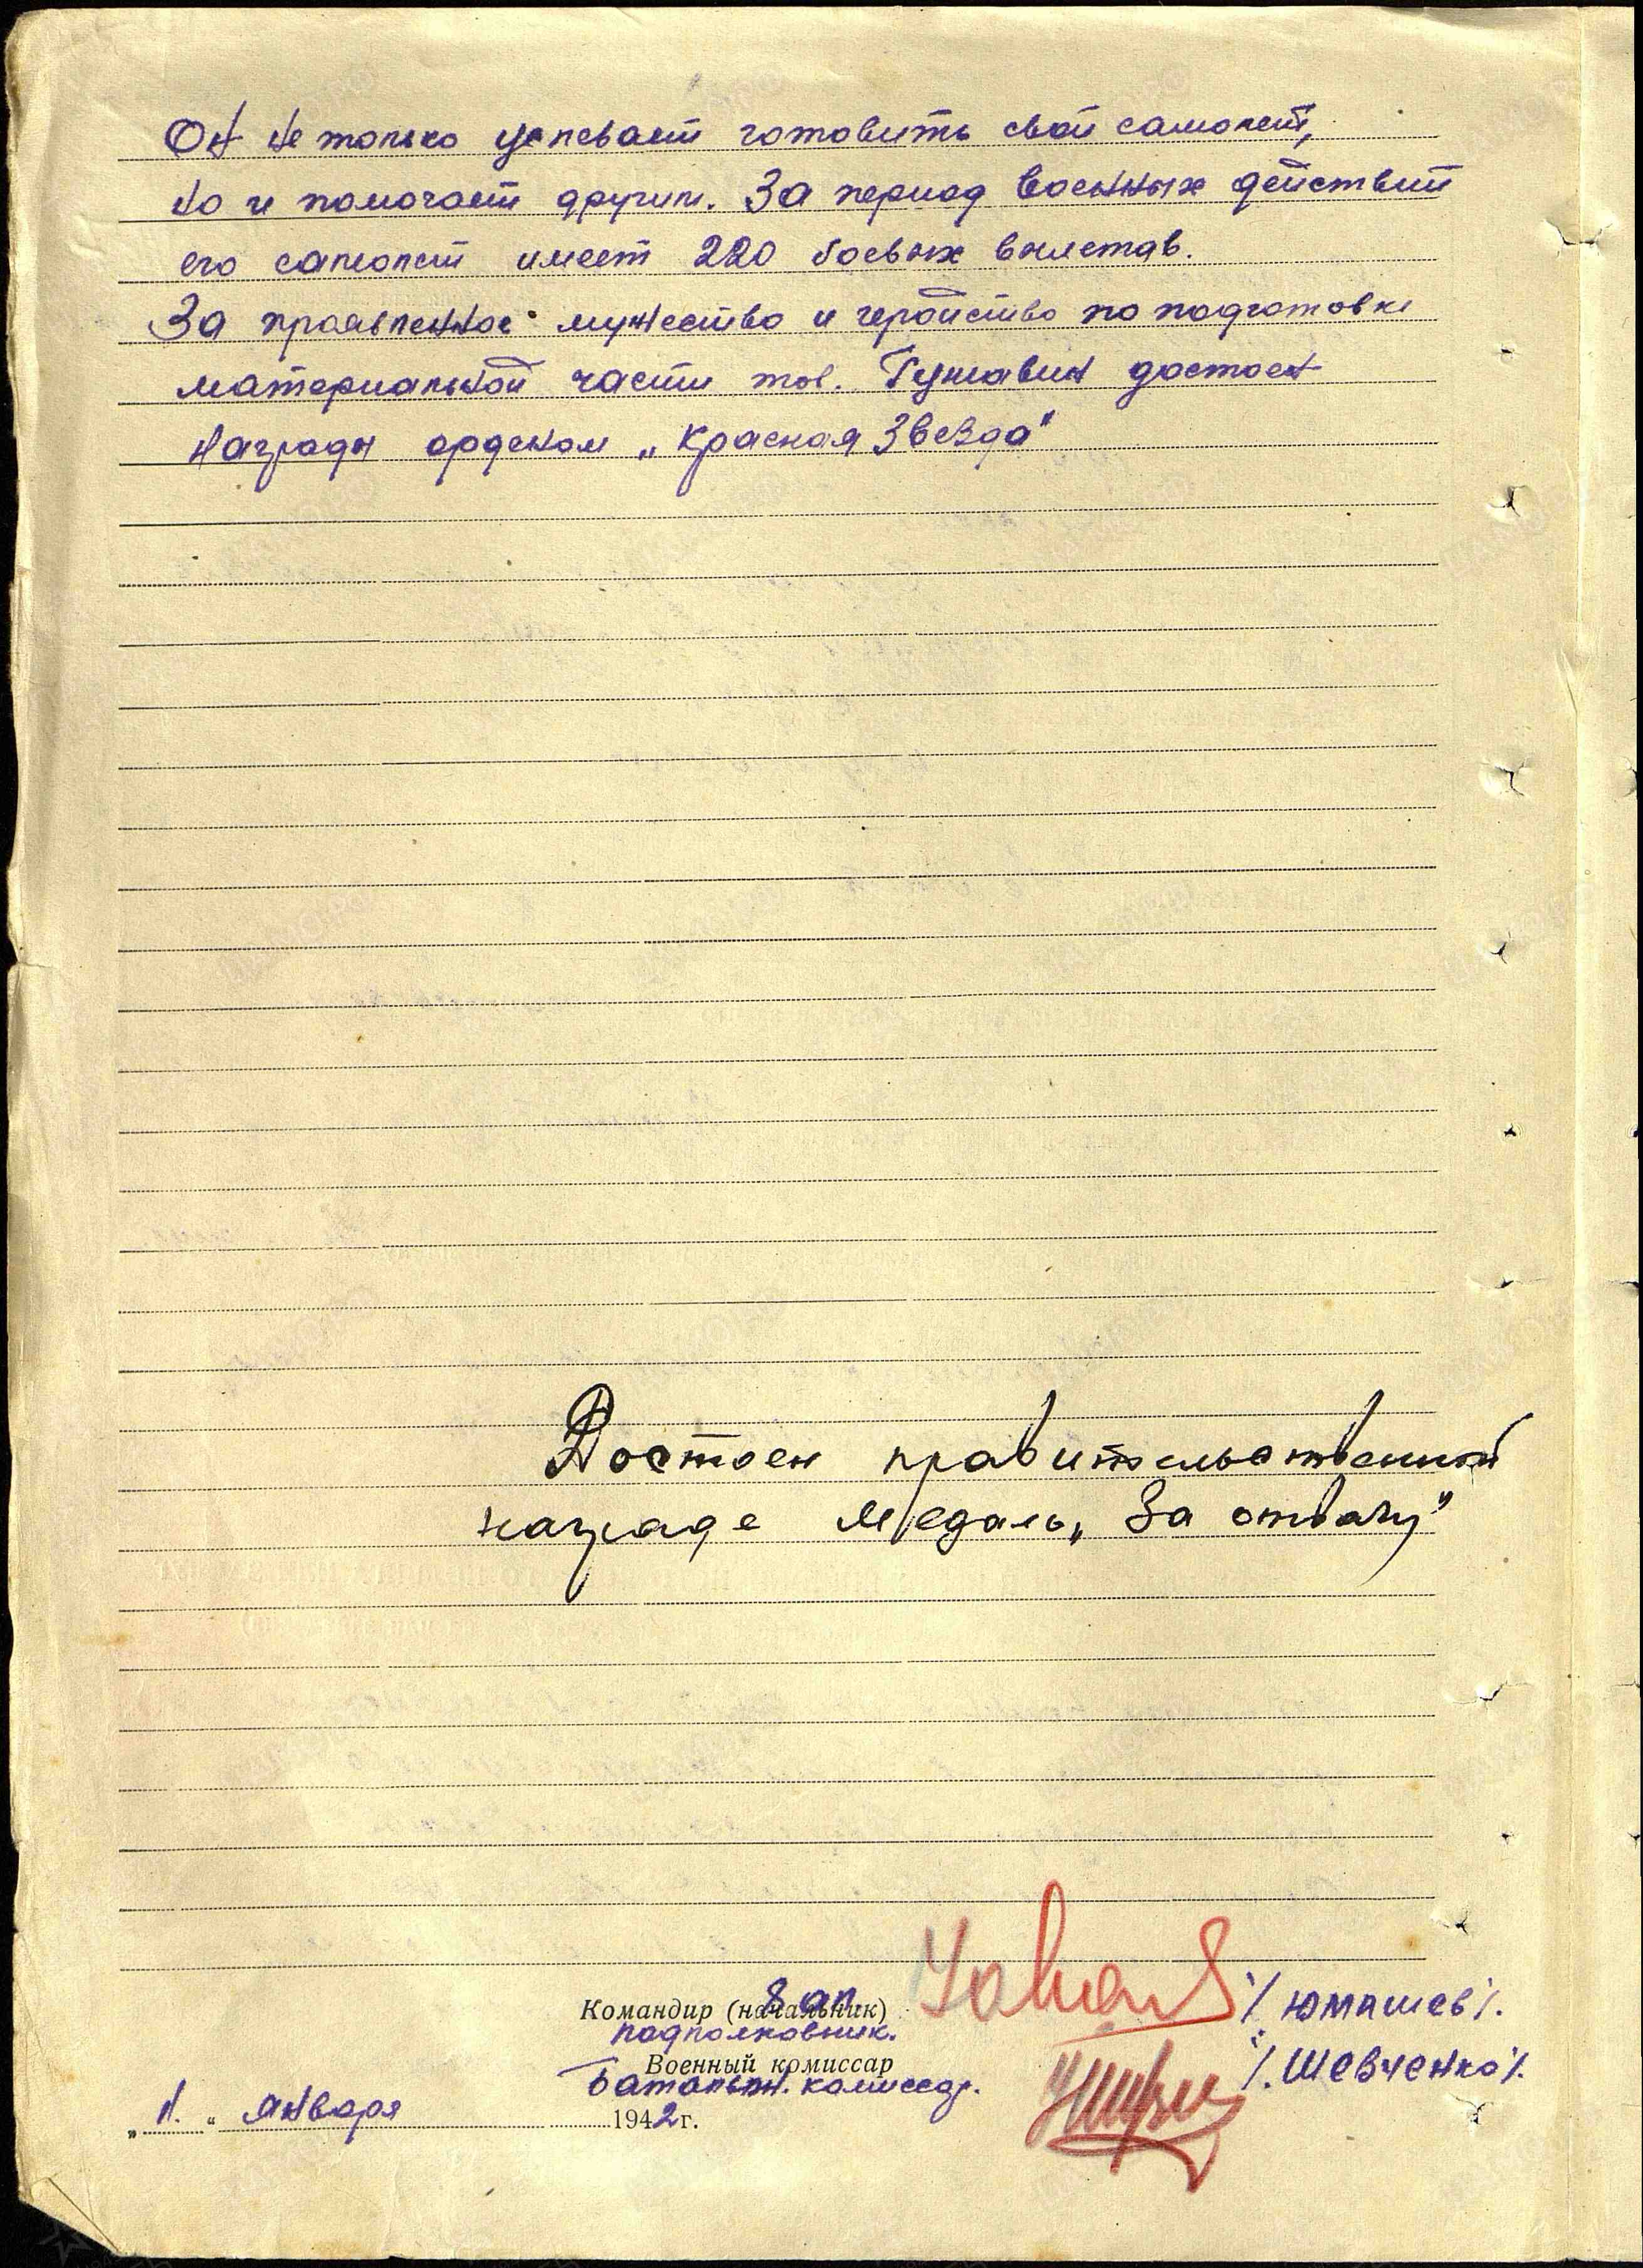 Он не только успевает готовить свой самолет,
но и помогает другим. За период военных действий
его самолет имеет 220 боевых вылетов.
За проявленное мужество и геройство по подготовке
материальной части тов. Гушавин достоен
награды орденом „Красная Звезда"
Достоен правительственной
награде Медаль „За отвагу"
8 ап.
Командир (начальник)
подполковник.
/Юмашев/.
Военный комиссар
Батальон. комиссар.
/.Шевченко/.
„ " января 1942 г.